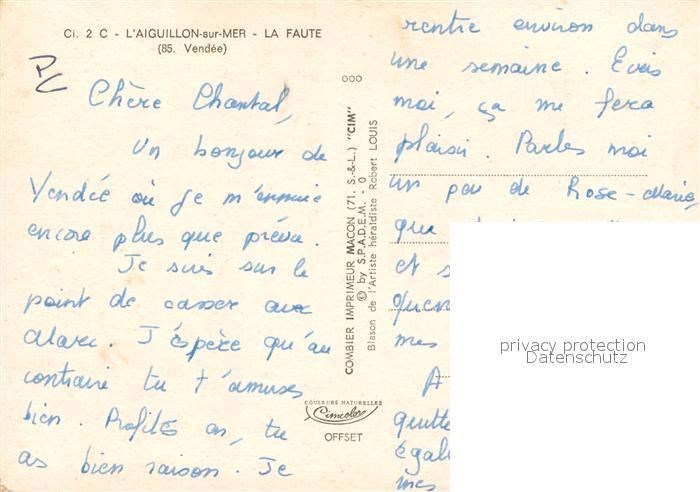 Cl. 2 C - L'AIGUILLON-sur-MER - LA FAUTE
(85. Vendée)
PC
Chère Chantal,
Un bonjour de
Vendée où je m'ennuie
encore plus que prévu.
Je suis sur le
point de casser avec
Marc. J'espère qu'au
contraire tu t'amuses
bien. Profites en, tu
as bien raison. Je
COMBIER IMPRIMEUR MACON (71. S.-&-L.) "CIM"
© by S.P.A.D.E.M. - 0
Blason de l'Artiste héraldiste Robert LOUIS
COULEURS NATURELLES
Cimcolor
OFFSET
rentre environ dans
une semaine. Ecris
moi, ça me fera
plaisir. Parles moi
un peu de Rose-Marie,
que
et s
mes
A
quitte
égal
mes
privacy protection
Datenschutz